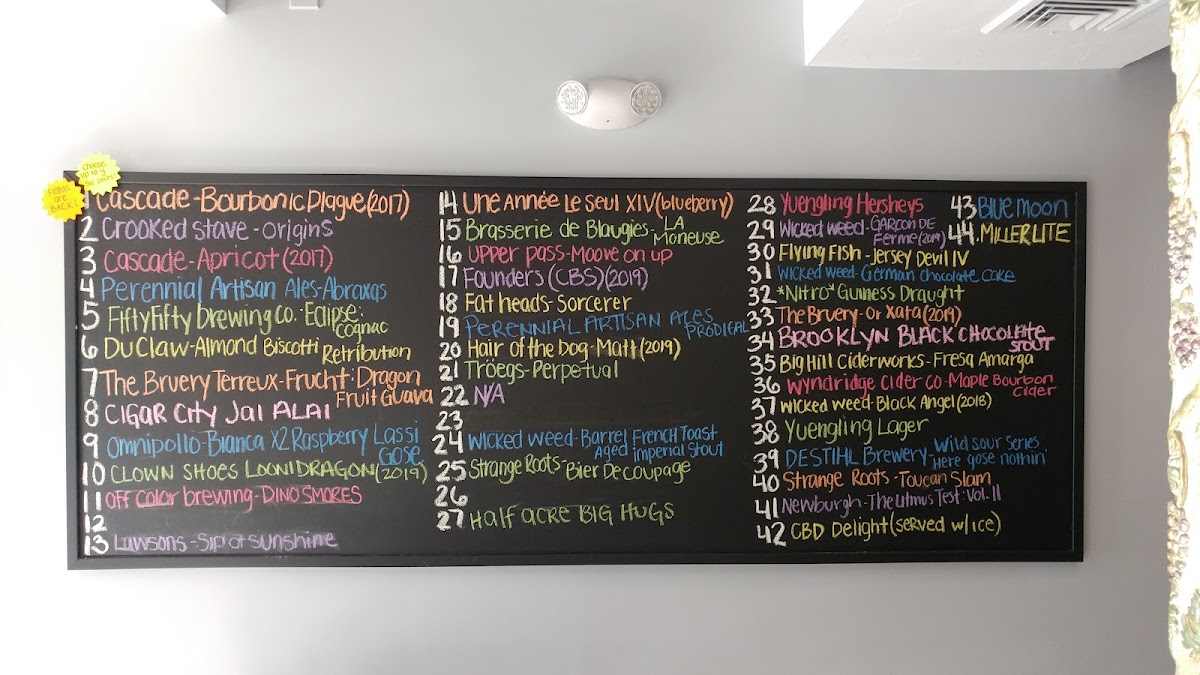 Flights are BACK!
Choose up to 4
1 Cascade-Bourbonic Plague(2017)
2 Crooked Stave-origins
3 Cascade-Apricot(2017)
4 Perennial Artisan Ales-Abraxas
5 FiftyFifty brewing co.:Eclipse:
cognac
6 DuClaw-Almond Biscotti Retribution
7 The Bruery Terreux-Frucht:Dragon
Fruit Guava
8 CIGAR CITY JAI ALAI
9 Omnipollo-Bianca X2 Raspberry Lassi
Gose
10 CLOWN SHOES LOONIDRAGON(2019)
11 Off color brewing-DINO SMORES
12
13 Lawsons-Sip of sunshine
14 Une Année Le Seul XIV(blueberry)
15 Brasserie de Blaugies-LA
Moneuse
16 Upper pass-Moove on up
17 Founders (CBS)(2019)
18 Fat heads-Sorcerer
19 PERENNIAL ARTISAN ALES
PRODIGAL
20 Hair of the dog-Matt(2019)
21 Tröegs-Perpetual
22 N/A
23
24 Wicked weed-Barrel French Toast
Aged imperial stout
25 Strange Roots-Bier Decoupage
26
27 HALF ACRE BIG HUGS
28 Yuengling Hersheys
29 Wicked weed-GARCON DE
Ferme(2019)
30 Flying Fish-Jersey Devil IV
31 Wicked weed-German chocolate cake
32 *Nitro* Guiness Draught
33 The Bruery-Or Xata(2019)
34 BROOKLYN BLACK CHOCOLATE
STOUT
35 Big Hill Ciderworks-Fresa Amarga
36 Wyndridge Cider Co-Maple Bourbon
Cider
37 Wicked weed-Black Angel(2018)
38 Yuengling Lager
39 DESTIHL Brewery-Wild sour series
Here gose nothin'
40 Strange Roots-Toucan Slam
41 Newburgh-The Litmus Test:Vol.II
42 CBD Delight(served w/ice)
43 Blue moon
44.MILLER LITE